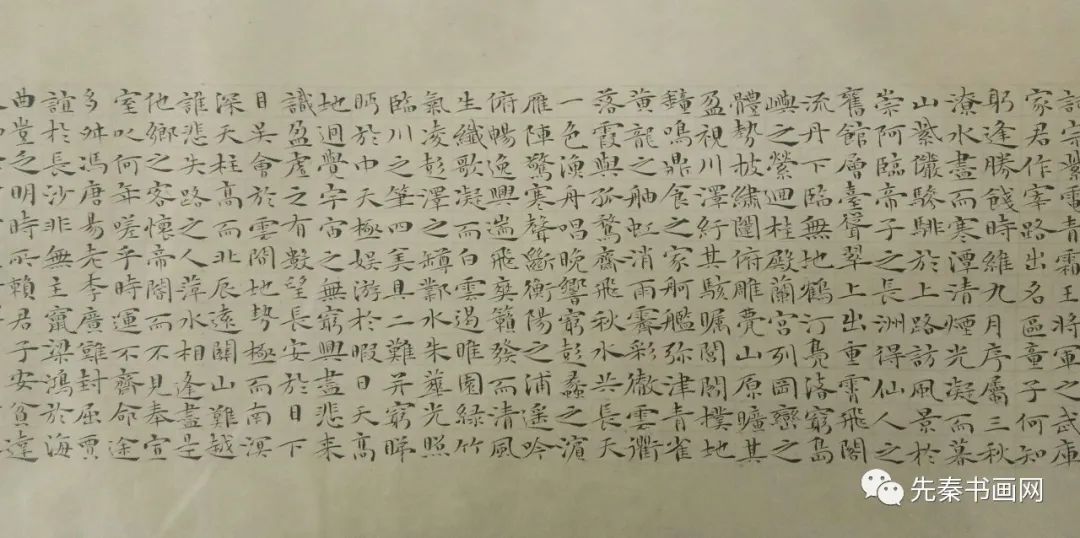 詞宗紫電青霜王將軍之武庫
家君作宰路出名區童子何知
躬逢勝餞時維九月序屬三秋
潦水盡而寒潭清煙光凝而暮
山紫儼驂騑於上路訪風景於
崇阿臨帝子之長洲得仙人之
舊館層臺聳翠上出重霄飛閣
流丹下臨無地鶴汀鳧渚窮島
嶼之縈迴桂殿蘭宮列岡巒之
體勢披繡闥俯雕甍山原曠其
盈視川澤紆其駭矚閭閻撲地
鐘鳴鼎食之家舸艦弥津青雀
黃龍之舳虹消雨霽彩徹雲衢
落霞與孤鶩齊飛秋水共長天
一色漁舟唱晚響窮彭蠡之濱
雁陣驚寒聲斷衡陽之浦遙吟
俯暢逸興遄飛爽籟發而清風
生纖歌凝而白雲遏睢園綠竹
氣凌彭澤之罇鄴水朱華光照
臨川之筆四美具二難并窮睇
眄於中天極娛游於暇日天高
地迥覺宇宙之無窮興盡悲來
識盈虛之有數望長安於日下
目吳會於雲間地勢極而南溟
深天柱高而北辰遠關山難越
誰悲失路之人萍水相逢盡是
他鄉之客懷帝閽而不見奉宣
室以何年嗟乎時運不齊命途
多舛馮唐易老李廣難封屈賈
誼於長沙非無主竄梁鴻於海
曲豈乏明時所賴君子安貧達
先秦书画网